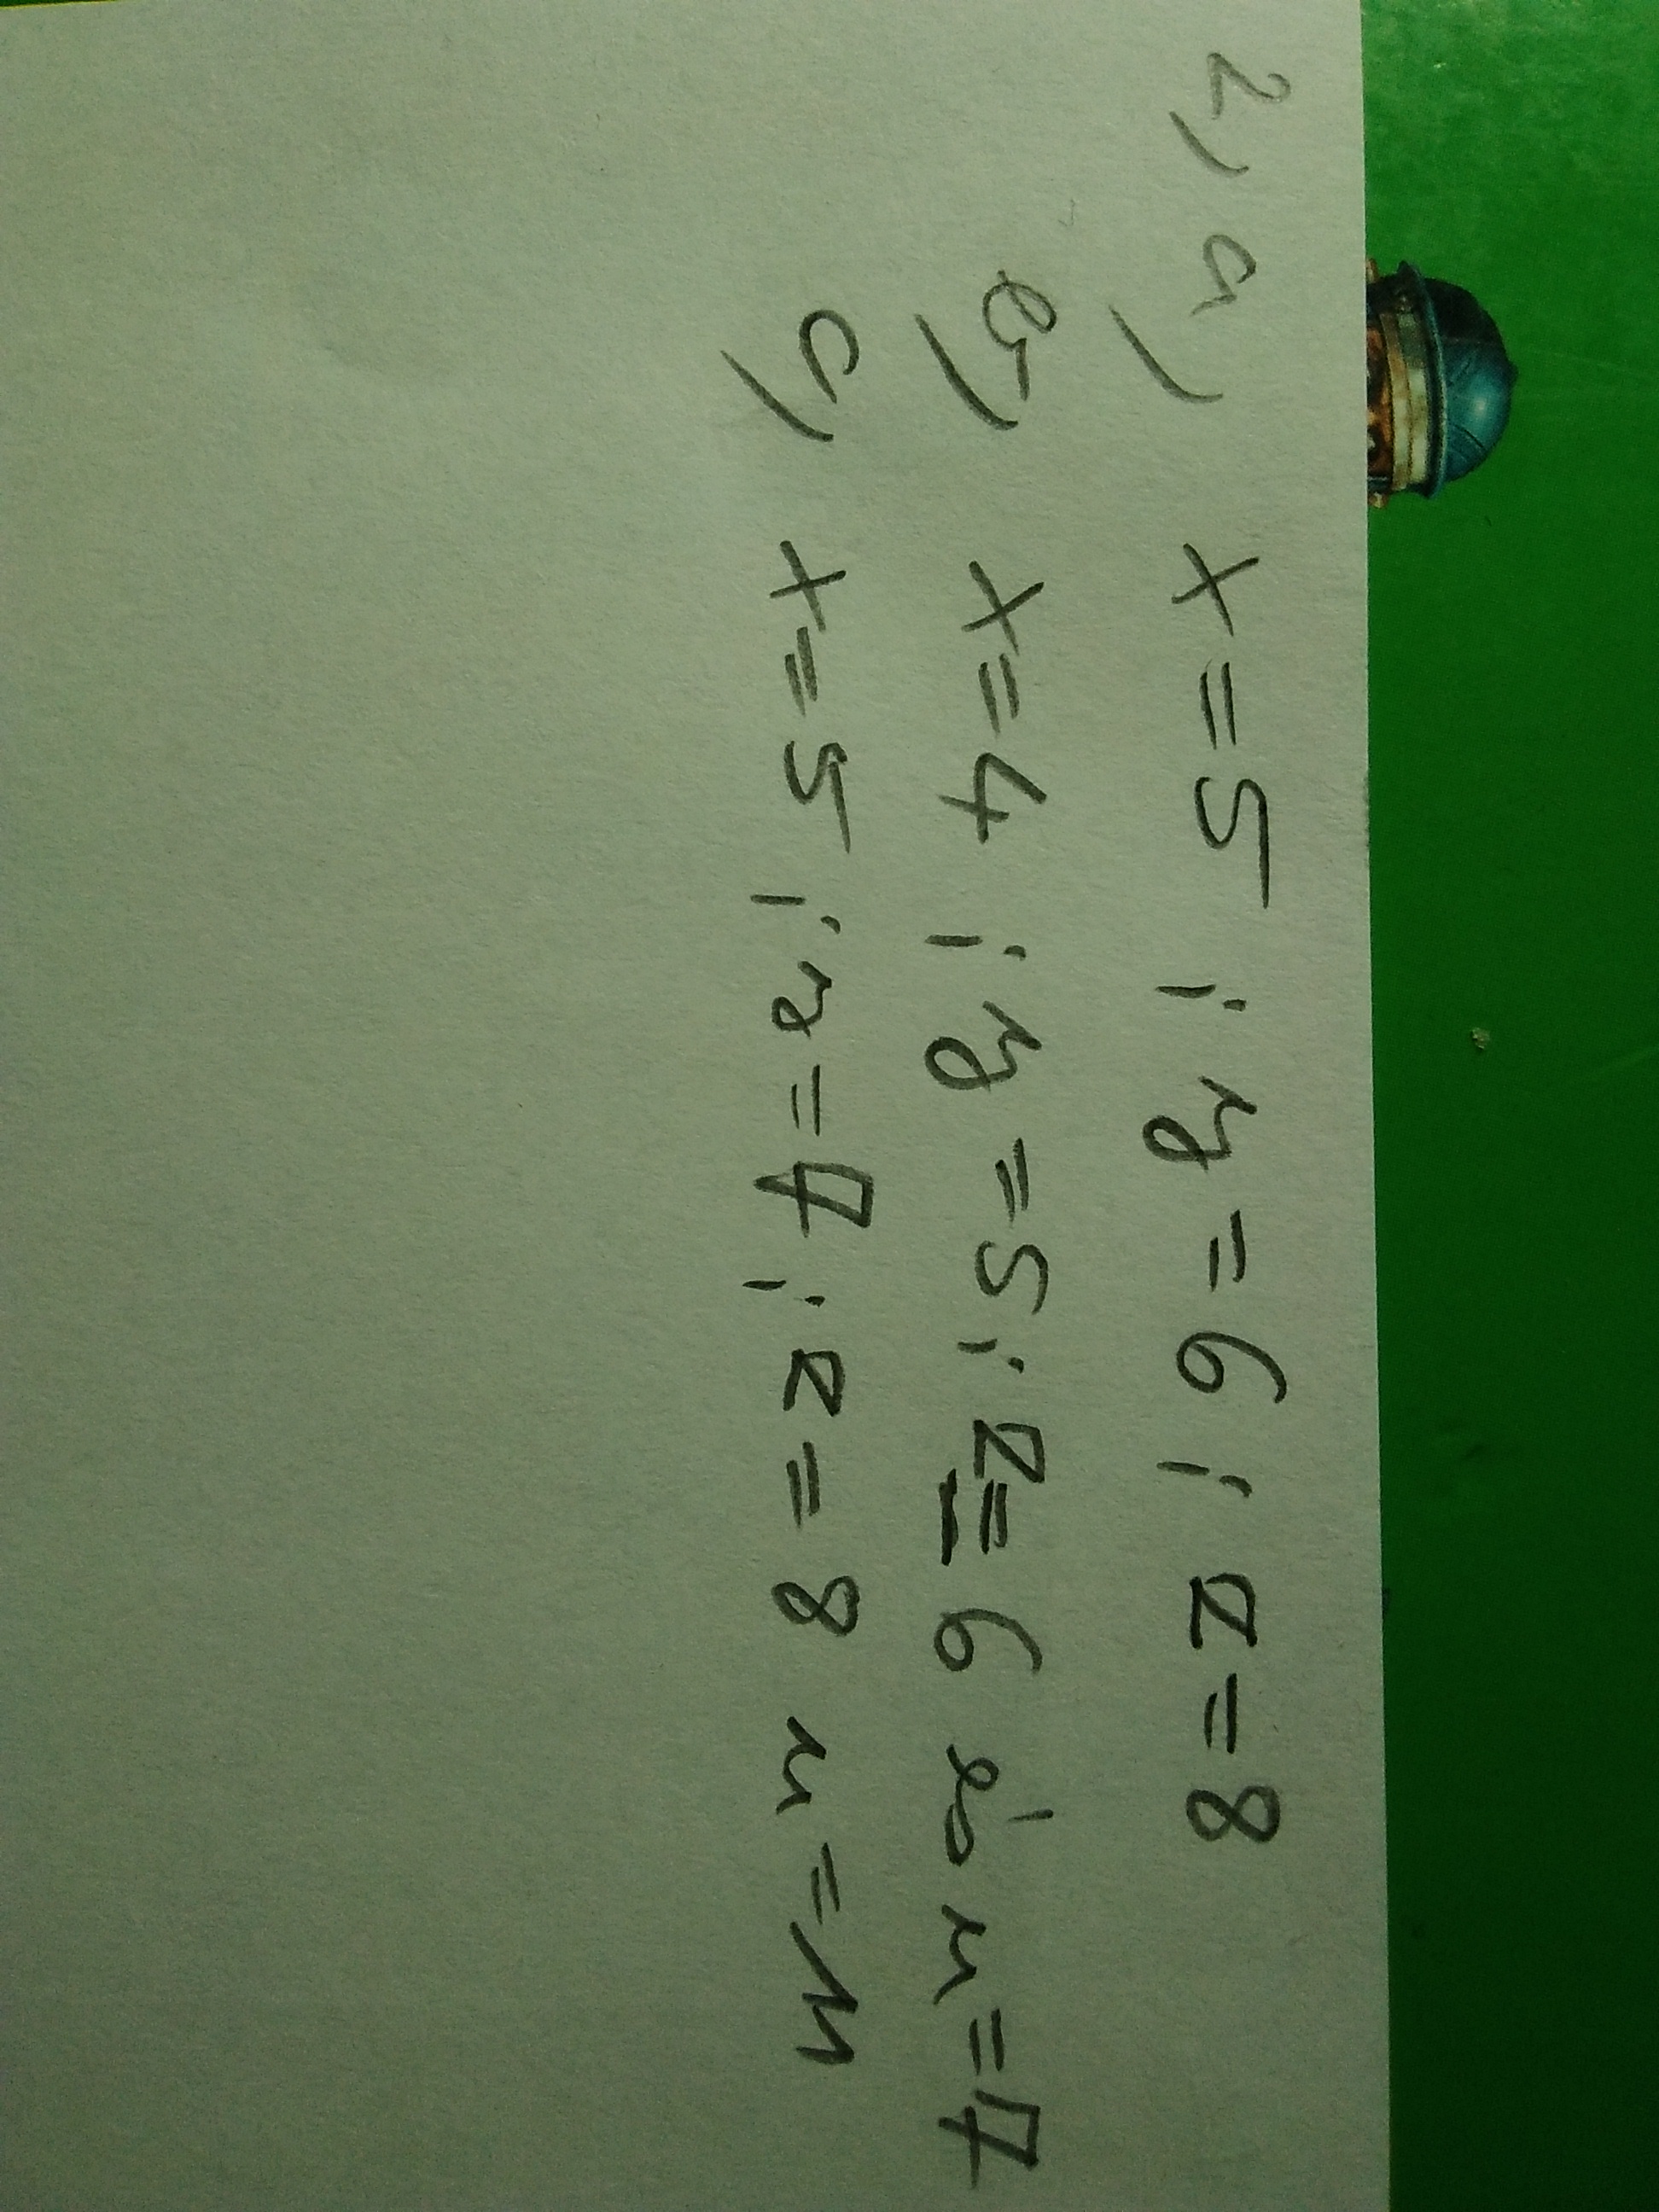 2, a) x = 5 ; y = 6 ; z = 8
b) x = 4 ; y = 5 ; z = 6 és u = 7
c) x = 5 ; y = 7 ; z = 8 u = 11